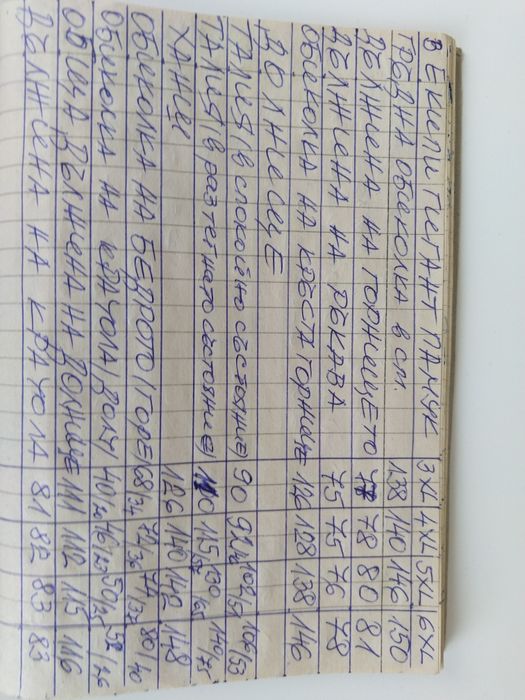 ЕКИПИ ГИГАНТ ПАМУК 3XL 4XL 5XL 6XL
ГРЪДНА ОБИКОЛКА В СМ. 138 140 146 150
ДЪЛЖИНА НА ГОРНИЩЕТО 78 80 81
ДЪЛЖИНА НА РЪКАВА 75 75 76 78
ОБИКОЛКА НА КРЪСТА ГОРНИЩЕ 126 128 138 146
ДОЛНИЩЕ
ТАЛИЯ (В СПОКОЙНО СЪСТОЯНИЕ) 90
ТАЛИЯ (В РАЗТЕГНАТО СЪСТОЯНИЕ) 110
ХАНШ 126 140 142 148
ОБИКОЛКА НА БЕДРОТО (ГОРЕ) 68/34 72/36 74/37 80/40
ОБИКОЛКА НА КРАЧОЛА/ДОЛУ 52/26
ОБЩА ДЪЛЖИНА НА ДОЛНИЩЕ 111 112 115 116
ДЪЛЖИНА НА КРАЧОЛА 81 82 83 83